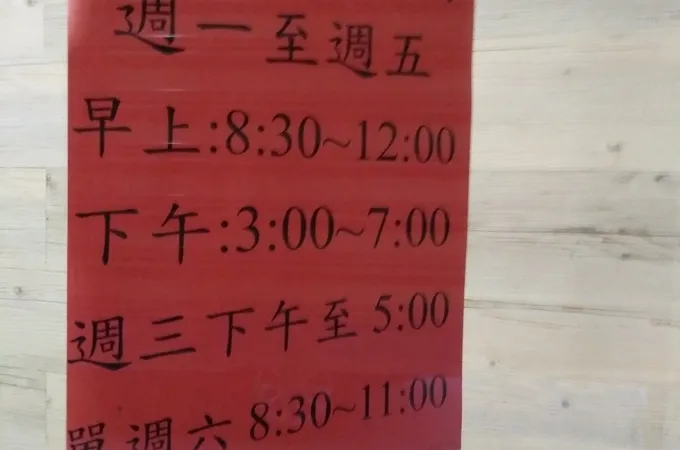 週一至週五
早上:8:30~12:00
下午:3:00~7:00
週三下午至5:00
單週六8:30~11:00